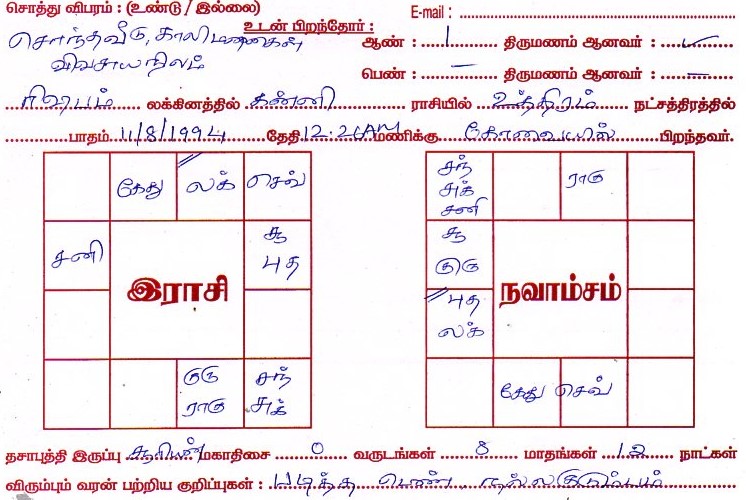 சொத்து விபரம் : (உண்டு / இல்லை)
E-mail :
சொந்தவீடு, காலிமனைகள்
உடன் பிறந்தோர் :
ஆண் : 1 திருமணம் ஆனவர் : ✓
விவசாயநிலம்
பெண் : — திருமணம் ஆனவர் : —
ரிஷபம் லக்கினத்தில் கன்னி ராசியில் உத்திரம் நட்சத்திரத்தில்
பாதம் 11/8/1994 தேதி 12.20AM மணிக்கு கோவையில் பிறந்தவர்.
கேது லக் செவ்
சனி சூ புத
இராசி
குரு ராகு சந் சுக்
சந் சுக் சனி ராகு
சூ குரு
நவாம்சம்
புத லக்
கேது செவ்
தசாபுத்தி இருப்பு சூரியன் மகாதிசை 0 வருடங்கள் 8 மாதங்கள் 12 நாட்கள்
விரும்பும் வரன் பற்றிய குறிப்புகள் : படித்த பெண். நல்லகுடும்பம்